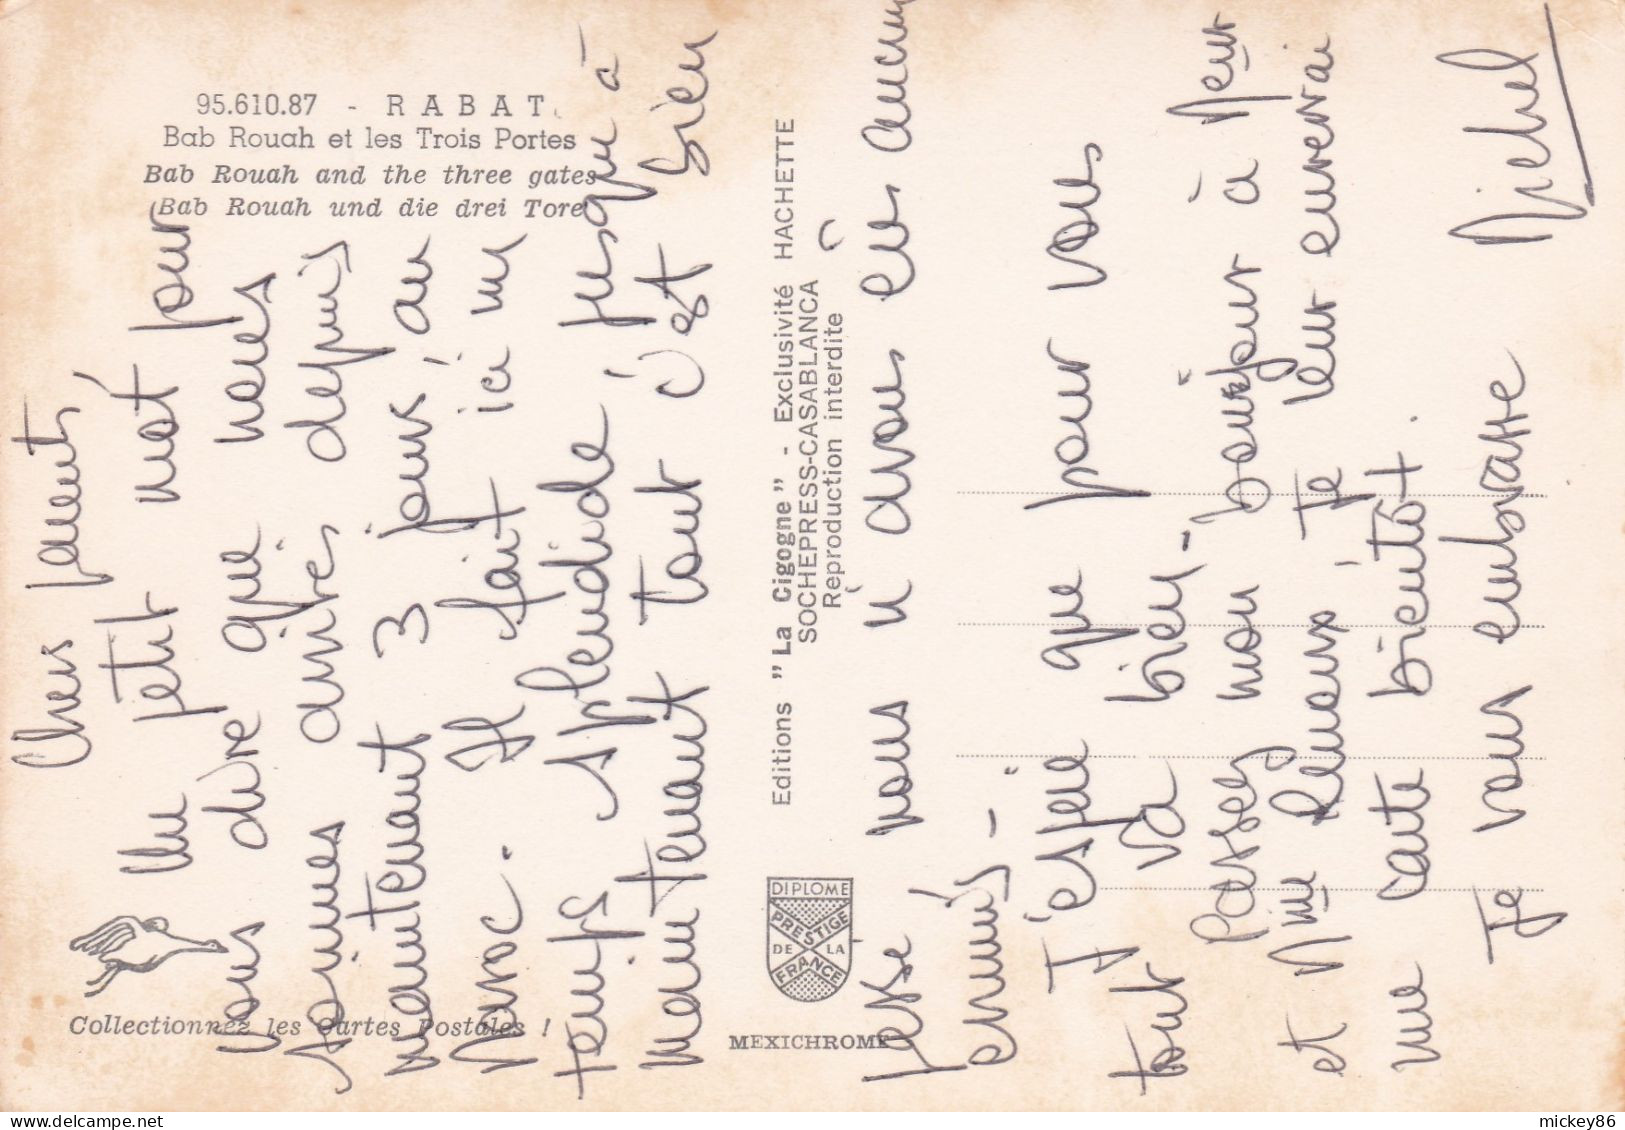 95.610.87 - RABAT
Bab Rouah et les Trois Portes
Bab Rouah and the three gates
Bab Rouah und die drei Tore
Collectionnez les Cartes Postales !
Editions "La Cigogne" - Exclusivité HACHETTE
SOCHEPRESS-CASABLANCA
Reproduction interdite
DIPLOME
PRESTIGE
DE LA
FRANCE
MEXICHROME
Chers parents,
Un petit mot pour
vous dire que nous
sommes arrivés depuis
maintenant 3 jours au
Maroc. Il fait ici un
temps splendide jusqu'à
maintenant tout c'est bien
passé nous n'avons eu aucun
ennuis -
J'espère que pour vous
tout va bien -
Passez mon bonjour à Meur
et Mme Renaux Je leur enverrai
une carte bientôt.
Je vous embrasse
Michel
mickey86